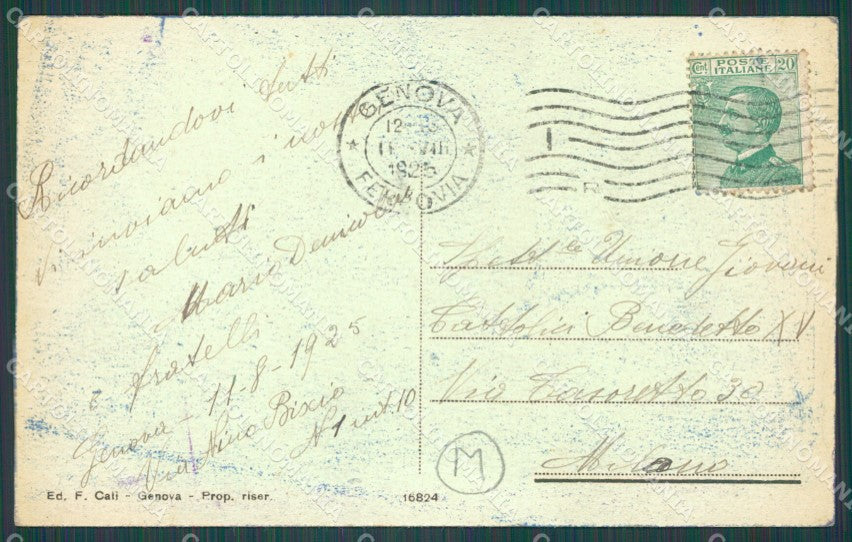 Ricordandovi tutti
v'inviamo i nostri
saluti
Mario
e fratelli
Genova - 11-8-1925
Via Nino Bixio
N 1 int. 10
GENOVA
12
VIII
1925
FERROVIA
Cent. POSTE 20
ITALIANE
Spett le Unione Giovani
Cattolici Benedetto XV
Via Casoretto 30
Milano
M
Ed. F. Cali - Genova - Prop. riser.
16824
CARTOLINOMANIA